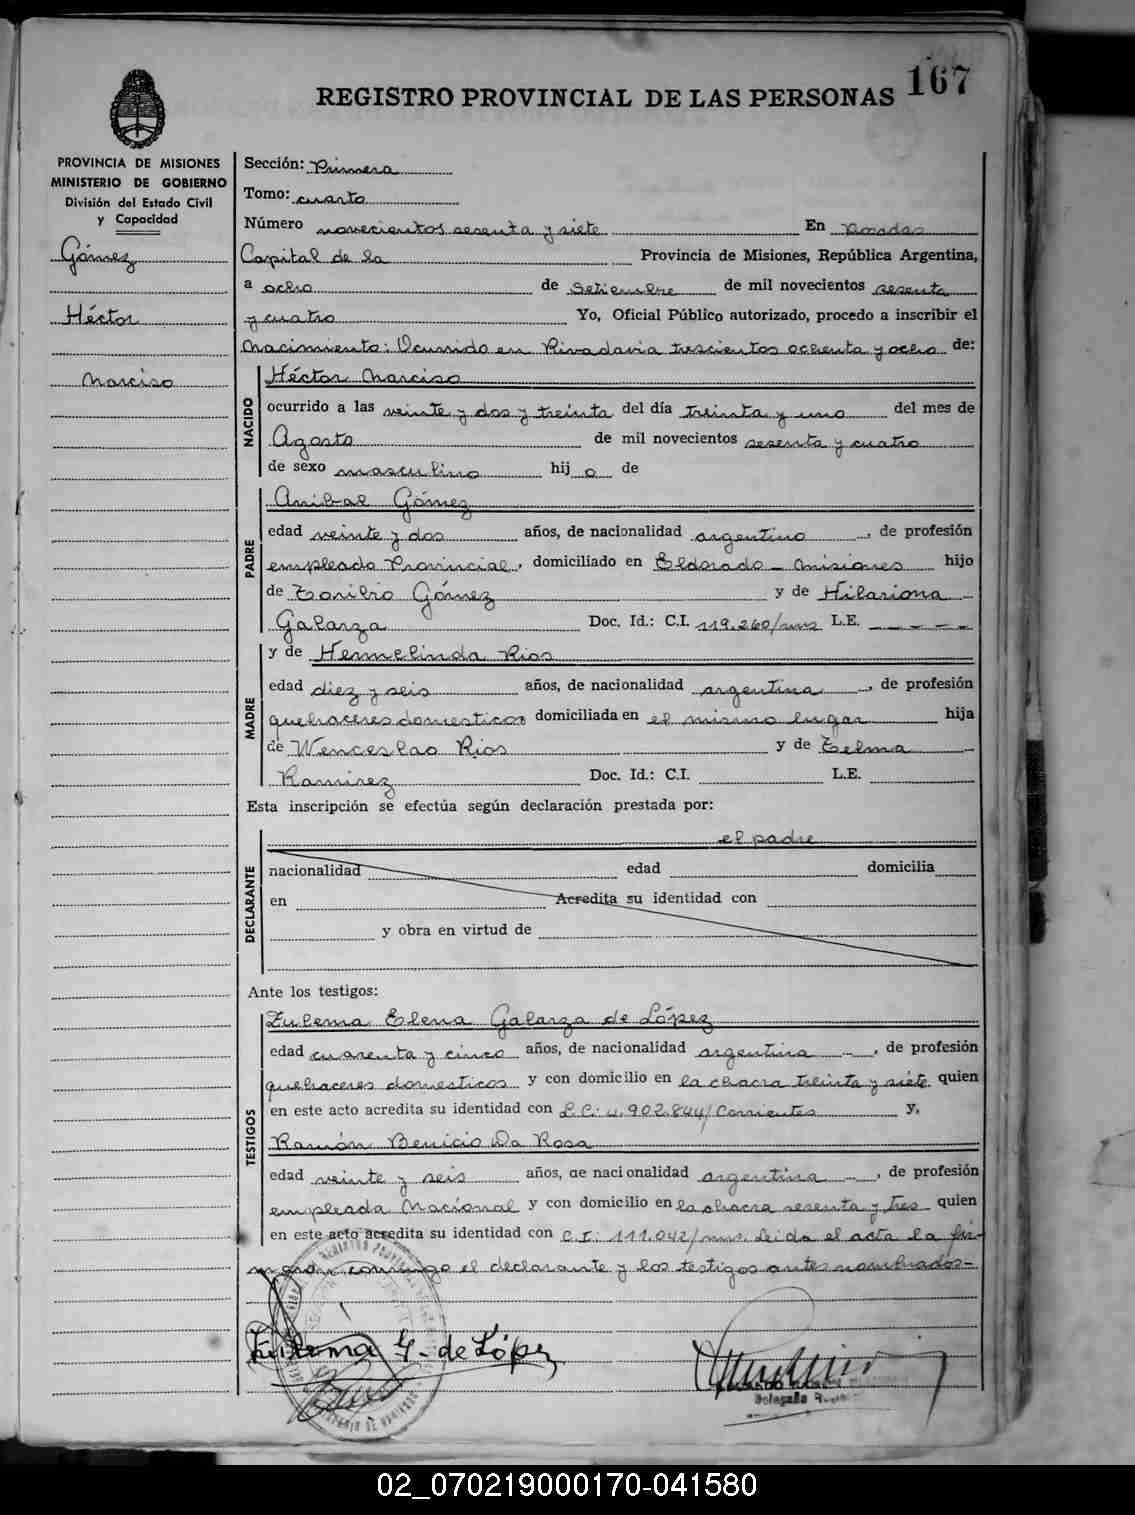 167
REGISTRO PROVINCIAL DE LAS PERSONAS
PROVINCIA DE MISIONES
MINISTERIO DE GOBIERNO
División del Estado Civil
y Capacidad
Gómez
Héctor
Narciso
Sección: Primera
Tomo: cuarto
Número novecientos sesenta y siete En Posadas
Capital de la Provincia de Misiones, República Argentina,
a ocho de Setiembre de mil novecientos sesenta
y cuatro Yo, Oficial Público autorizado, procedo a inscribir el
Nacimiento: Ocurrido en Rivadavia trescientos ochenta y ocho de:
NACIDO
Héctor Narciso
ocurrido a las veinte y dos y treinta del día treinta y uno del mes de
Agosto de mil novecientos sesenta y cuatro
de sexo masculino hij o de
PADRE
Anibal Gómez
edad veinte y dos años, de nacionalidad argentino, de profesión
empleado Provincial, domiciliado en Eldorado - Misiones hijo
de Toribio Gómez y de Hilariona
Galarza Doc. Id.: C.I. 119.260/mns L.E. - - - - -
MADRE
y de Hermelinda Rios
edad diez y seis años, de nacionalidad argentina, de profesión
quehaceres domesticos domiciliada en el mismo lugar hija
de Wenceslao Rios y de Telma
Ramirez Doc. Id.: C.I. L.E.
Esta inscripción se efectúa según declaración prestada por:
DECLARANTE
el padre
nacionalidad edad domicilia
en Acredita su identidad con
y obra en virtud de
Ante los testigos:
TESTIGOS
Zulema Elena Galarza de López
edad cuarenta y cinco años, de nacionalidad argentina, de profesión
quehaceres domesticos y con domicilio en la chacra treinta y siete quien
en este acto acredita su identidad con L.C: 4.902.844/Corrientes y,
Ramón Benicio Da Rosa
edad veinte y seis años, de nacionalidad argentina, de profesión
empleada Nacional y con domicilio en la chacra sesenta y tres quien
en este acto acredita su identidad con C.I: 111.042/mns. Leida el acta la fir-
man conmigo el declarante y los testigos antes nombrados-
Zulema G. de López
02_070219000170-041580